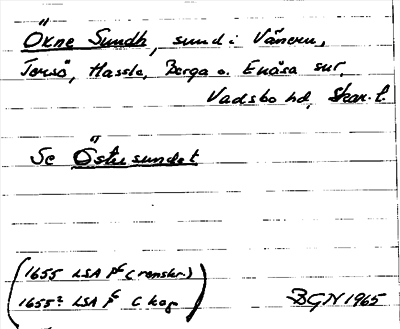 Ökne Sundh, sund i Vänern,
Torsö, Hassle, Berga o. Enåsa snr,
Vadsbo hd, Skar. l.
Se Östersundet
(1655 LSA P6 (renskr.)
1655? LSA P6 C kog)
BGN 1965